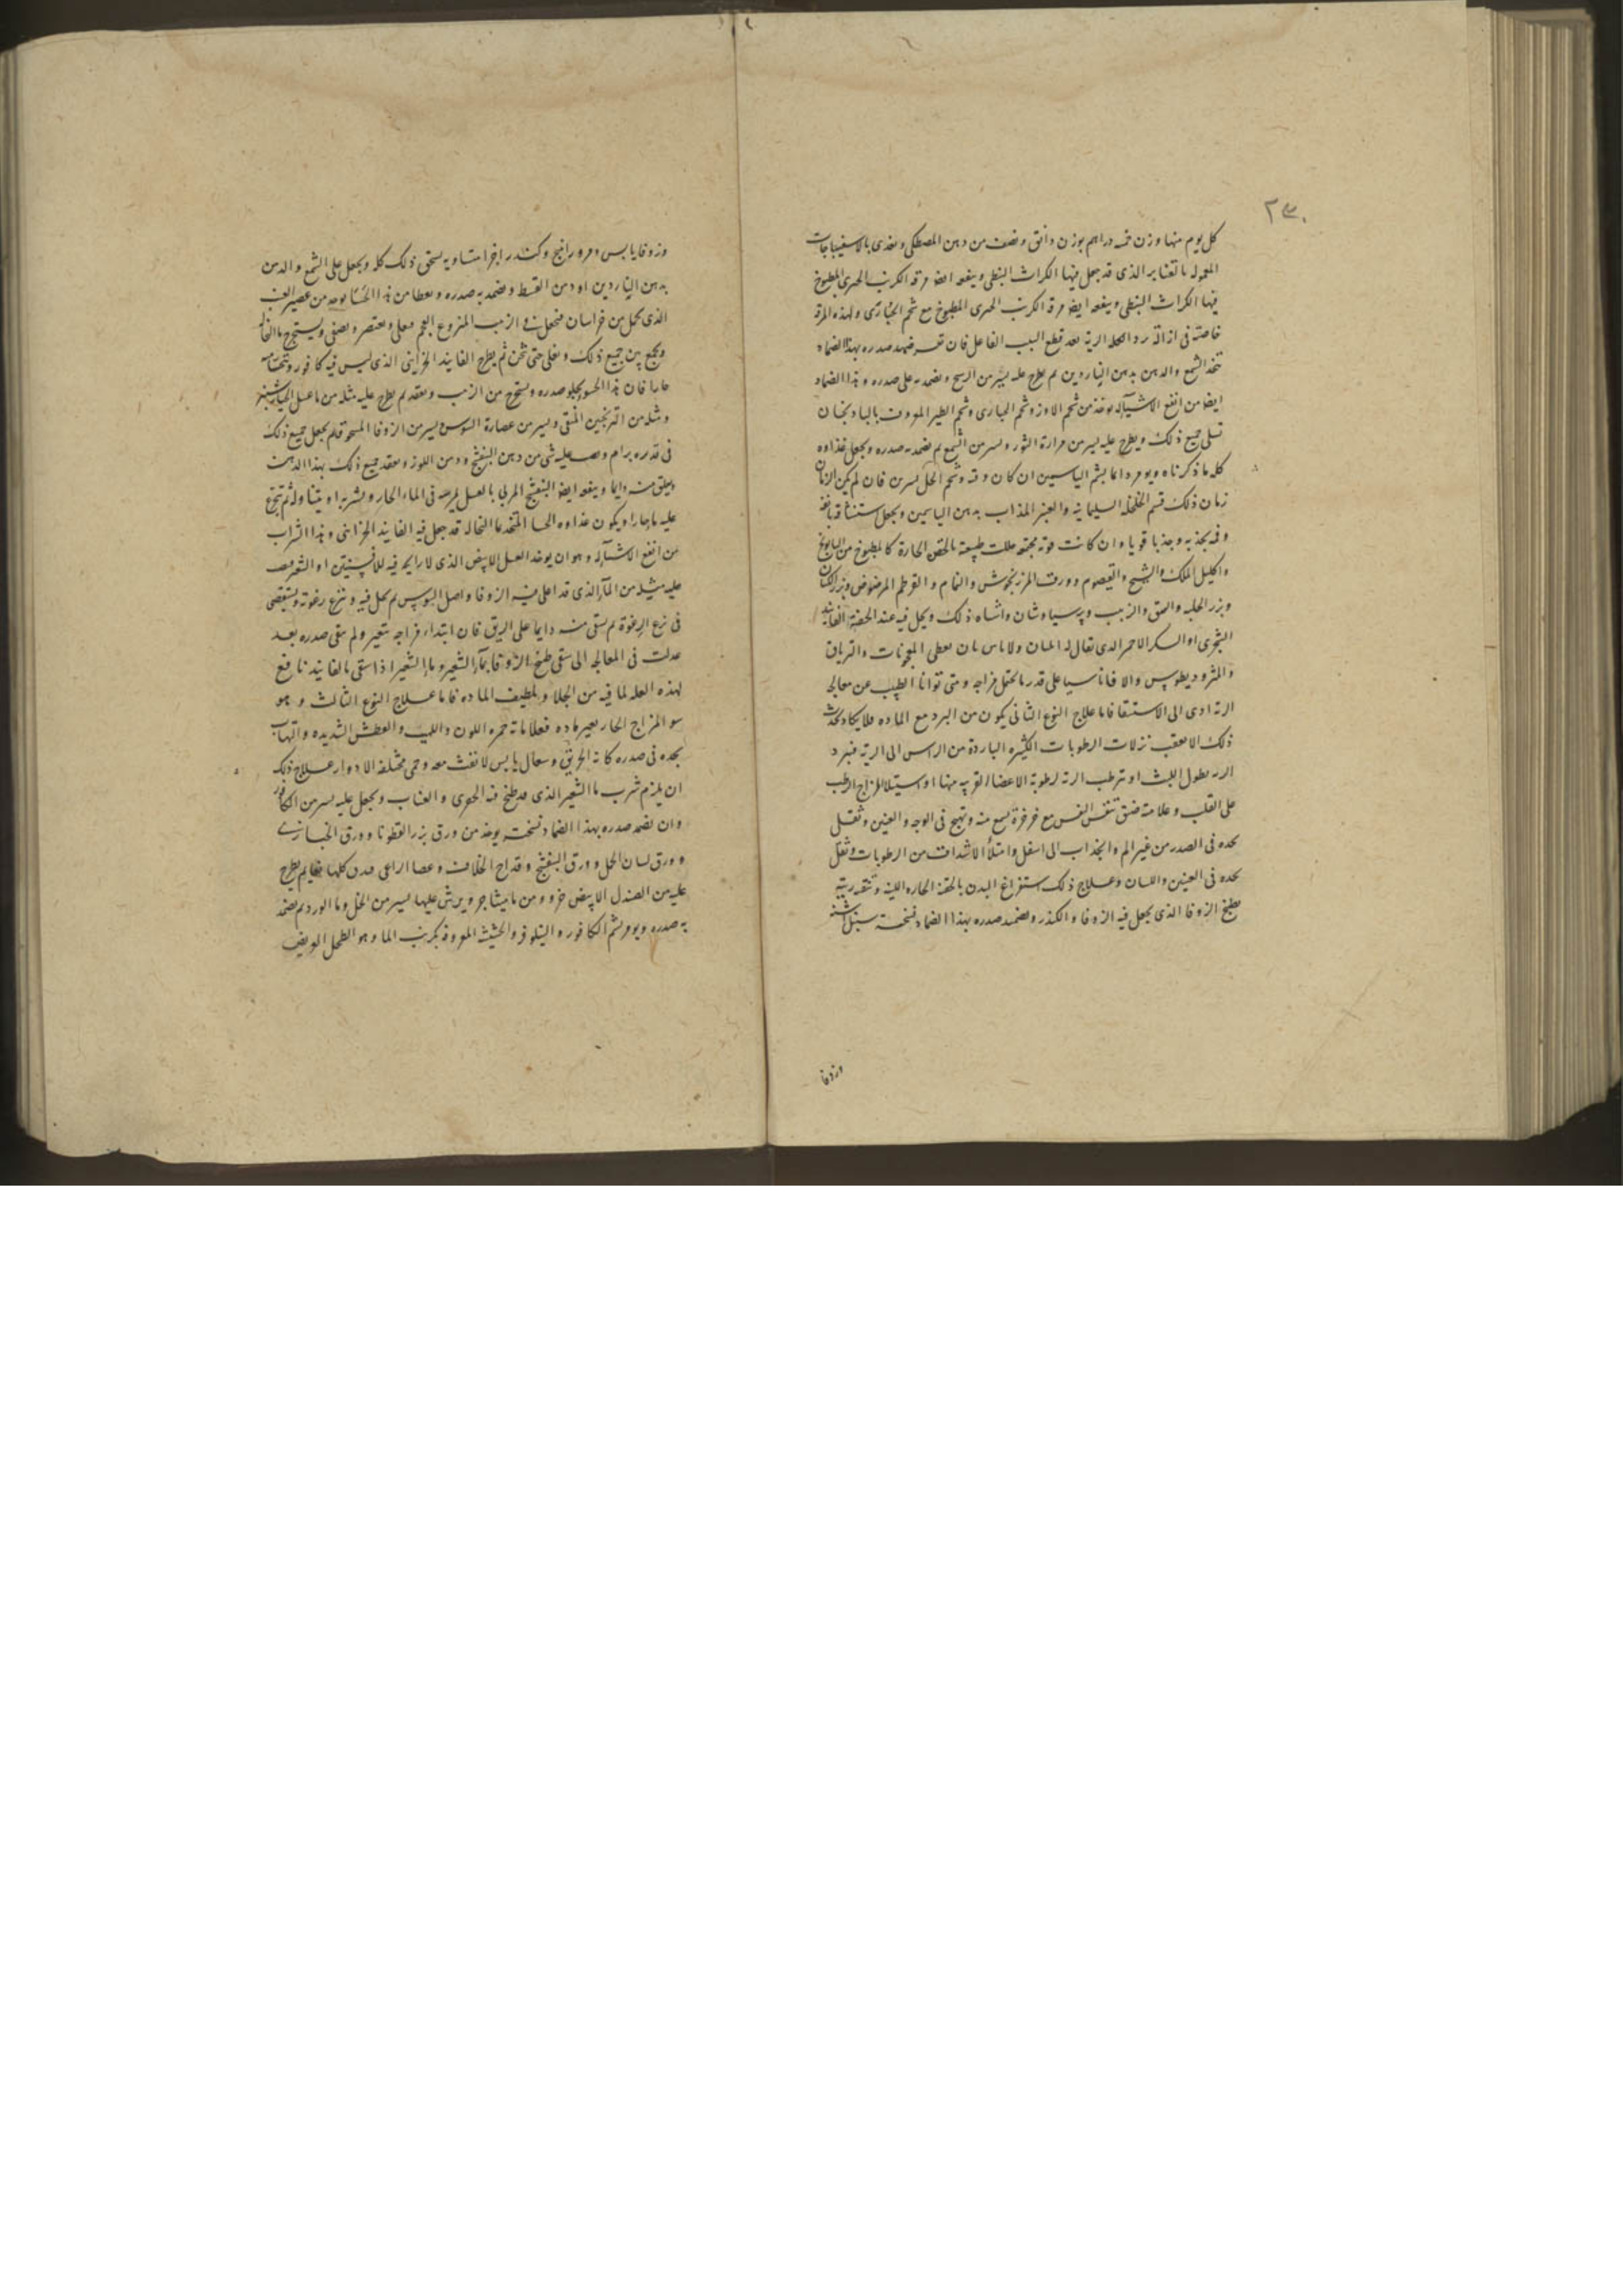 ٢٣٠
كل يوم منها وزن خمسة دراهم بوزن دانق ونصف من دهن المصطكى ويغذى بالاسفيباجات
المعموله بالقنابر الذى قد جعل فيها الكراث النبطى وينفعه ايضا مرقه الكرنب المطبوخ
فيها الكراث النبطى وينفعه ايضا مرقه الكرنب المطبوخ مع شحم الحبارى ولهذه المرقه
خاصة فى ازالة برد الريه بعد قطع السبب الفاعل فان ضمد صدره بهذا الضماد
يتخذ الشمع والدهن بدهن الناردين ثم يطرح عليه يسير من ويضمد به على صدره وهذا الضماد
ايضا من انفع الاشياء له يوخذ من شحم الاوز وشحم الحبارى وشحم الطير المعروف
تسلى جميع ذلك ويطرح عليه يسير من مرارة الثور ويسير من الشمع ثم يضمد به صدره ويجعل غذاوه
كله ما ذكرناه ويومر دايما بشم الياسمين ان كان وقته فان لم يكن الزمان
زمان ذلك السليمانيه والعنبر المذاب بدهن الياسمين ويجعل
وان كانت قوته مجتمعه حللت طبيعته بالحقن الحارة كالمطبوخ من البابونج
واكليل الملك والشيح والقيصوم وورق المرزنجوش والنمام والقرطم المرضوض وبزر الكتان
وبزر الحلبه والزبيب وبرسياوشان واشباه ذلك ويحل فيه عند الحقنة الفانيد
الشجرى او السكر الاحمر الذى يقال له ولا باس بان يعطى المعجونات والترياق
والمثروديطوس والا على قدر ما يحتمل مزاجه ومتى توانا الطبيب عن معالجه
الرئه ادى الى الاستسقا فاما علاج النوع الثانى يكون من البرد مع الماده فلا يكاد يحدث
ذلك الا بعقب نزلات الرطوبات الكثيره الباردة من الراس الى الرية فيبرد
الريه بطول اللبث او ترطب الريه لرطوبة الاعضا القريبه منها او استيلا المزاج الرطب
على القلب وعلامته ضيق تنفس النفس مع خرخرة تسمع منه وتهيج فى الوجه والعينين وثقل
يجده فى الصدر من غير الم وانجذاب الى اسفل وامتلاء الاشداق من الرطوبات وثقل
يجده فى العينين واللسان وعلاج ذلك استفراغ البدن بالحقنة الحاره اللينه وتنقيه ريته
بطبيخ الزوفا الذى يجعل فيه الزوفا والكندر ويضمد صدره بهذا الضماد نسخته سنبل اشنه
وزوفا
وزوفا يابس ومر وراتينج وكندر اجزا متساويه يسحق ذلك كله ويجعل على الشمع والدهن
بدهن الناردين او دهن القسط ويضمد به صدره ويعطا من هذا الحسا يوخذ من عصير العنب
الذى يحمل من خراسان فيجعل فى الزبيب المنزوع العجم ويغلى ويعتصر ويصفى ويستخرج ما النخاله
ويجمع بين جميع ذلك ويغلى حتى يثخن ثم يطرح الفانيد الخزاينى الذى ليس فيه كافور ويتحساه
حارا فان هذا الحسو يجلو صدره ويستخرج من الزبيب ويعقد ثم يطرح عليه مثله من ما عسل الخيارشنبر
ومثله من الترنجبين المنقى ويسير من عصارة السوس ويسير من الزوفا المسحوق ثم يجعل جميع ذلك
فى قدر برام ويصب عليه شى من دهن البنفسج ودهن اللوز ويعقد جميع ذلك بهذا الدهن
ويلعق منه دايما وينفعه ايضا البنفسج المربى بالعسل يمرسه فى الماء الحار ويشربه او يتناوله ثم يتجرع
عليه ما حارا ويكون غذاوه الحسا المتخذ بما النخاله قد جعل فيه الفانيد الخزاينى وهذا الشراب
من انفع الاشياء له وهو ان يوخذ العسل الابيض الذى لا رايحه فيه للافسنتين او الشعير ويصب
عليه مثليه من الماء الذى قد اغلى فيه الزوفا واصل السوس ثم يحل فيه وينزع رغوته ويستقصى
فى نزع الرغوة ثم يسقى منه دايما على الريق فان ابتداء مزاجه يتغير ولم ينقى صدره بعد
عدلت فى المعالجه الى سقى طبيخ الزوفا بماء الشعير وماء الشعير اذا سقى بالفانيد نافع
لهذه العله لما فيه من الجلا وتلطيف الماده فاما علاج النوع الثالث وهو
سو المزاج الحار بغير ماده فعلاماته حمره اللون واللهيب والعطش الشديده والتهاب
يجده فى صدره كانه الحريق وسعال يابس لا نفث معه وحمى مختلفه الادوار علاج ذلك
ان يلزم شرب ما الشعير الذى قد طبخ فيه والعناب ويجعل عليه يسير من الكافور
وان يضمد صدره بهذا الضماد نسخته يوخذ من ورق بزر القطونا وورق الخبازى
وورق لسان الحمل وورق البنفسج وقداح الخلاف وعصا الراعى يدق كلها ثم يطرح
عليه من الصندل الابيض جزو ومن ماميثا جزو ويرش عليها يسير من الخل وما الورد ثم يضمد
به صدره ويومر بشم الكافور والنيلوفر والحشيش المعروف بكرنب الما وهو الطحلب العريض